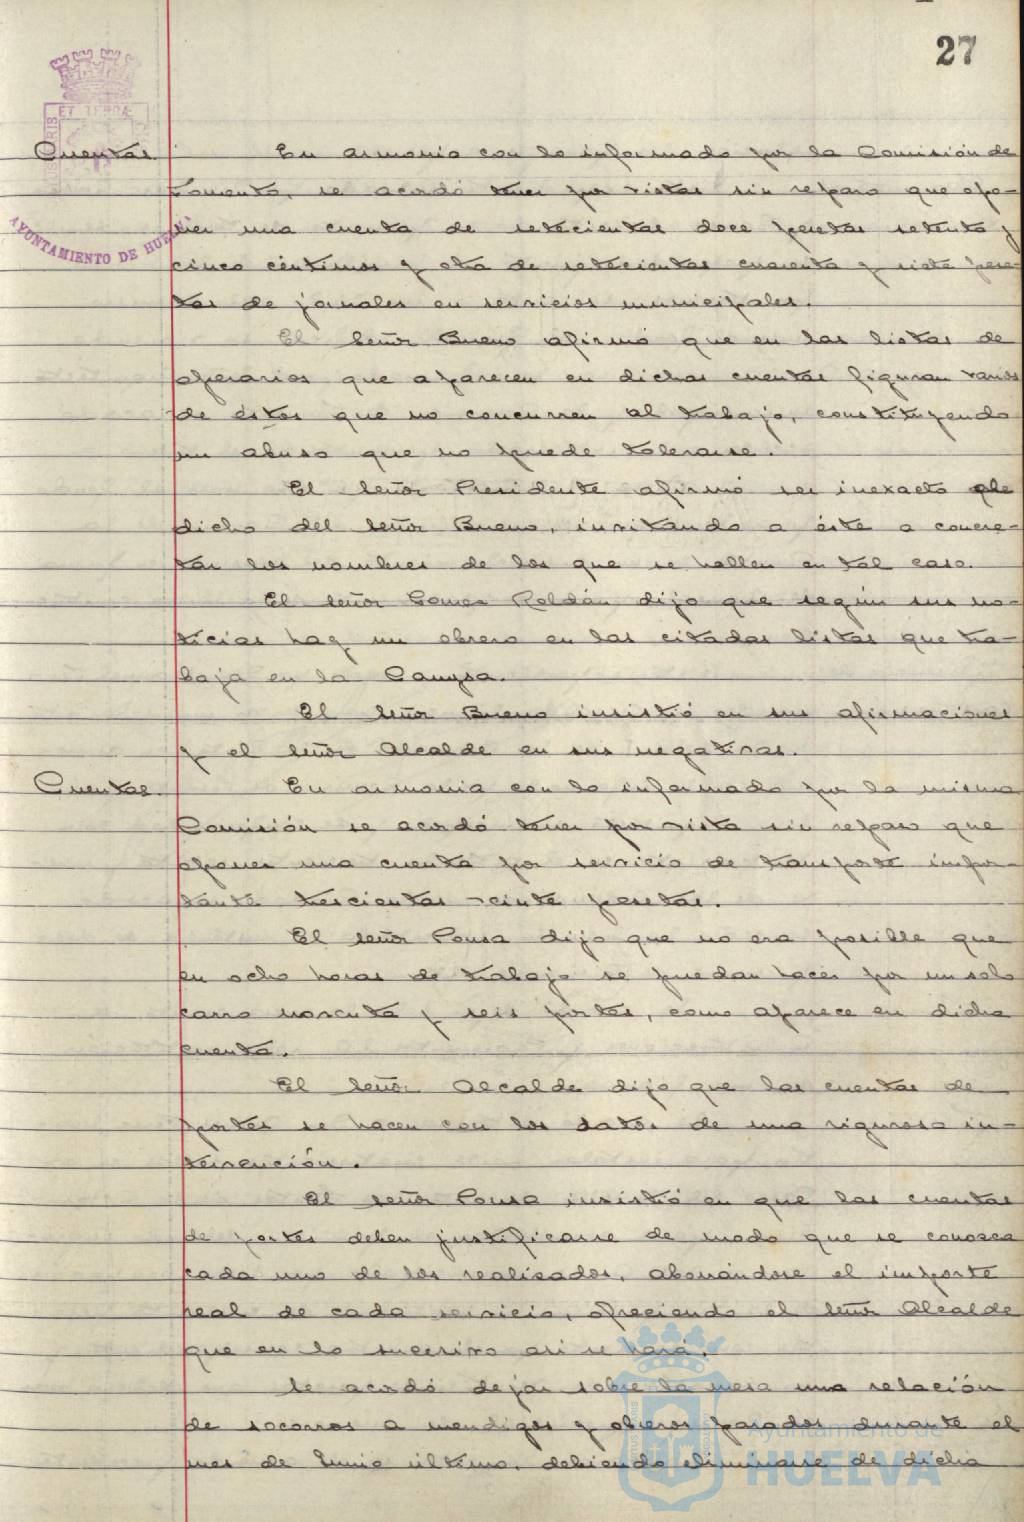 27
Cuentas
En armonia con lo informado por la Comisión de
Fomento, se acordó tener por vistas sin reparo que opo-
ner una cuenta de setecientas doce pesetas setenta y
cinco céntimos y otra de setecientas cuarenta y siete pese-
tas de jornales en servicios municipales.
El Señor Bueno afirmó que en las listas de
operarios que aparecen en dichas cuentas figuran varios
de éstos que no concurren al trabajo, constituyendo
un abuso que no puede tolerarse.
El Señor Presidente afirmó ser inexacto
dicho del Señor Bueno, invitando a éste a concre-
tar los nombres de los que se hallen en tal caso.
El señor Gomez Roldán dijo que según sus no-
ticias hay un obrero en las citadas listas que tra-
baja en la Campsa.
El señor Bueno insistió en sus afirmaciones
y el señor Alcalde en sus negativas.
Cuentas
En armonia con lo informado por la misma
Comisión se acordó tener por vista sin reparo que
oponer una cuenta por servicio de transporte impor-
tante trescientas veinte pesetas.
El señor Ponsa dijo que no era posible que
en ocho horas de trabajo se puedan hacer por un solo
carro noventa y seis portes, como aparece en dicha
cuenta.
El señor Alcalde dijo que las cuentas de
portes se hacen con los datos de una rigurosa in-
tervención.
El señor Ponsa insistió en que las cuentas
de portes deben justificarse de modo que se conozca
cada uno de los realizados, abonándose el importe
real de cada servicio, ofreciendo el señor Alcalde
que en lo sucesivo asi se hará.
Se acordó dejar sobre la mesa una relación
de socorros a mendigos y obreros parados durante el
mes de Junio último, debiendo eliminarse de dicha
AYUNTAMIENTO DE HUELVA
Ayuntamiento de
HUELVA